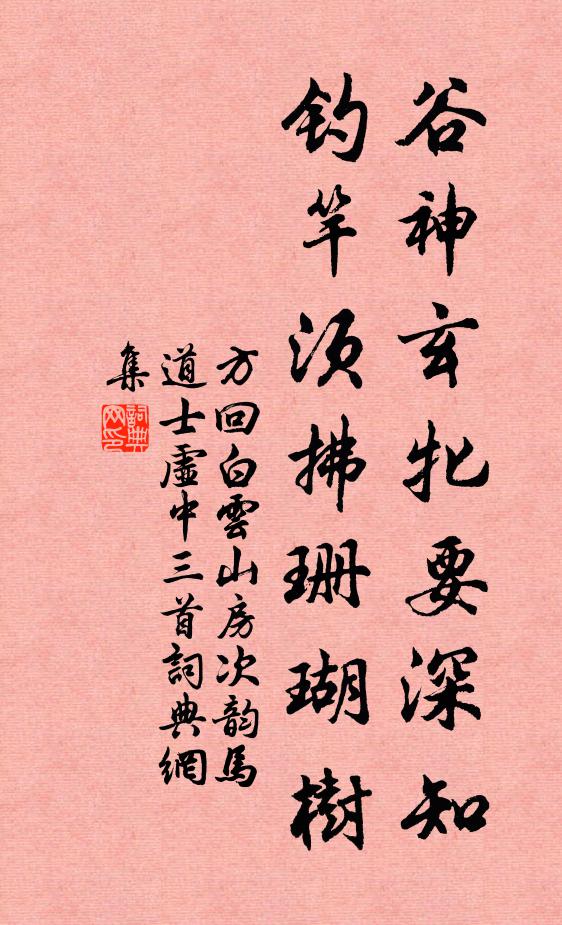 谷神玄牝要深知
钓竿须拂珊瑚樹
方回白雲山房次韵馬
道士虛中三首詞典網
集
詞典
网印